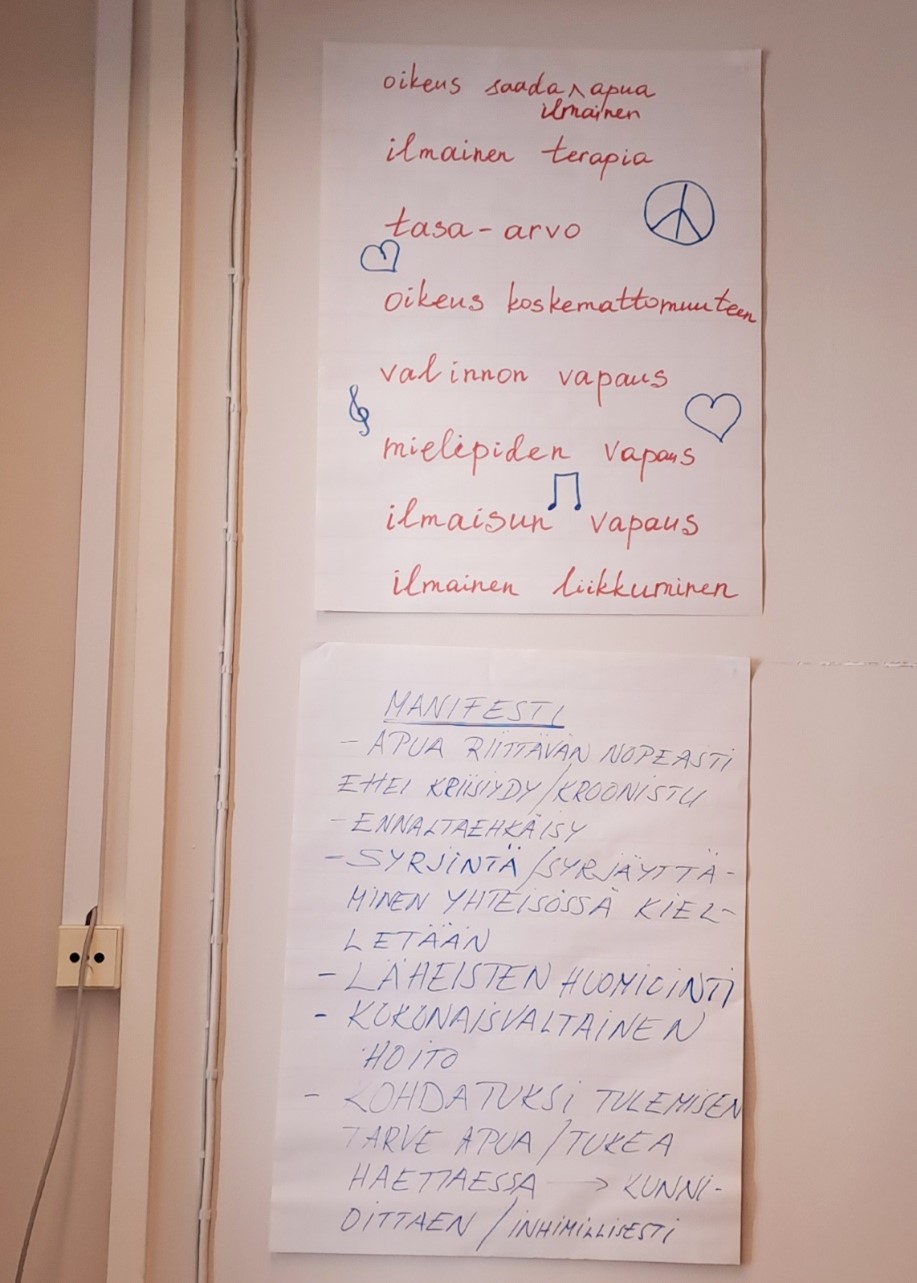 oikeus saada ^ apua
ilmainen
ilmainen terapia
tasa-arvo
oikeus koskemattomuuteen
valinnon vapaus
mielipiden vapaus
ilmaisun vapaus
ilmainen liikkuminen
MANIFESTI
- APUA RIITTÄVÄN NOPEASTI
ETTEI KRIISIYDY/KROONISTU
- ENNALTAEHKÄISY
- SYRJINTÄ/SYRJÄYTTÄ-
MINEN YHTEISÖSSÄ KIEL-
LETÄÄN
- LÄHEISTEN HUOMIOINTI
- KOKONAISVALTAINEN
HOITO
- KOHDATUKSI TULEMISEN
TARVE APUA/TUKEA
HAETTAESSA → KUNNI-
OITTAEN/INHIMILLISESTI